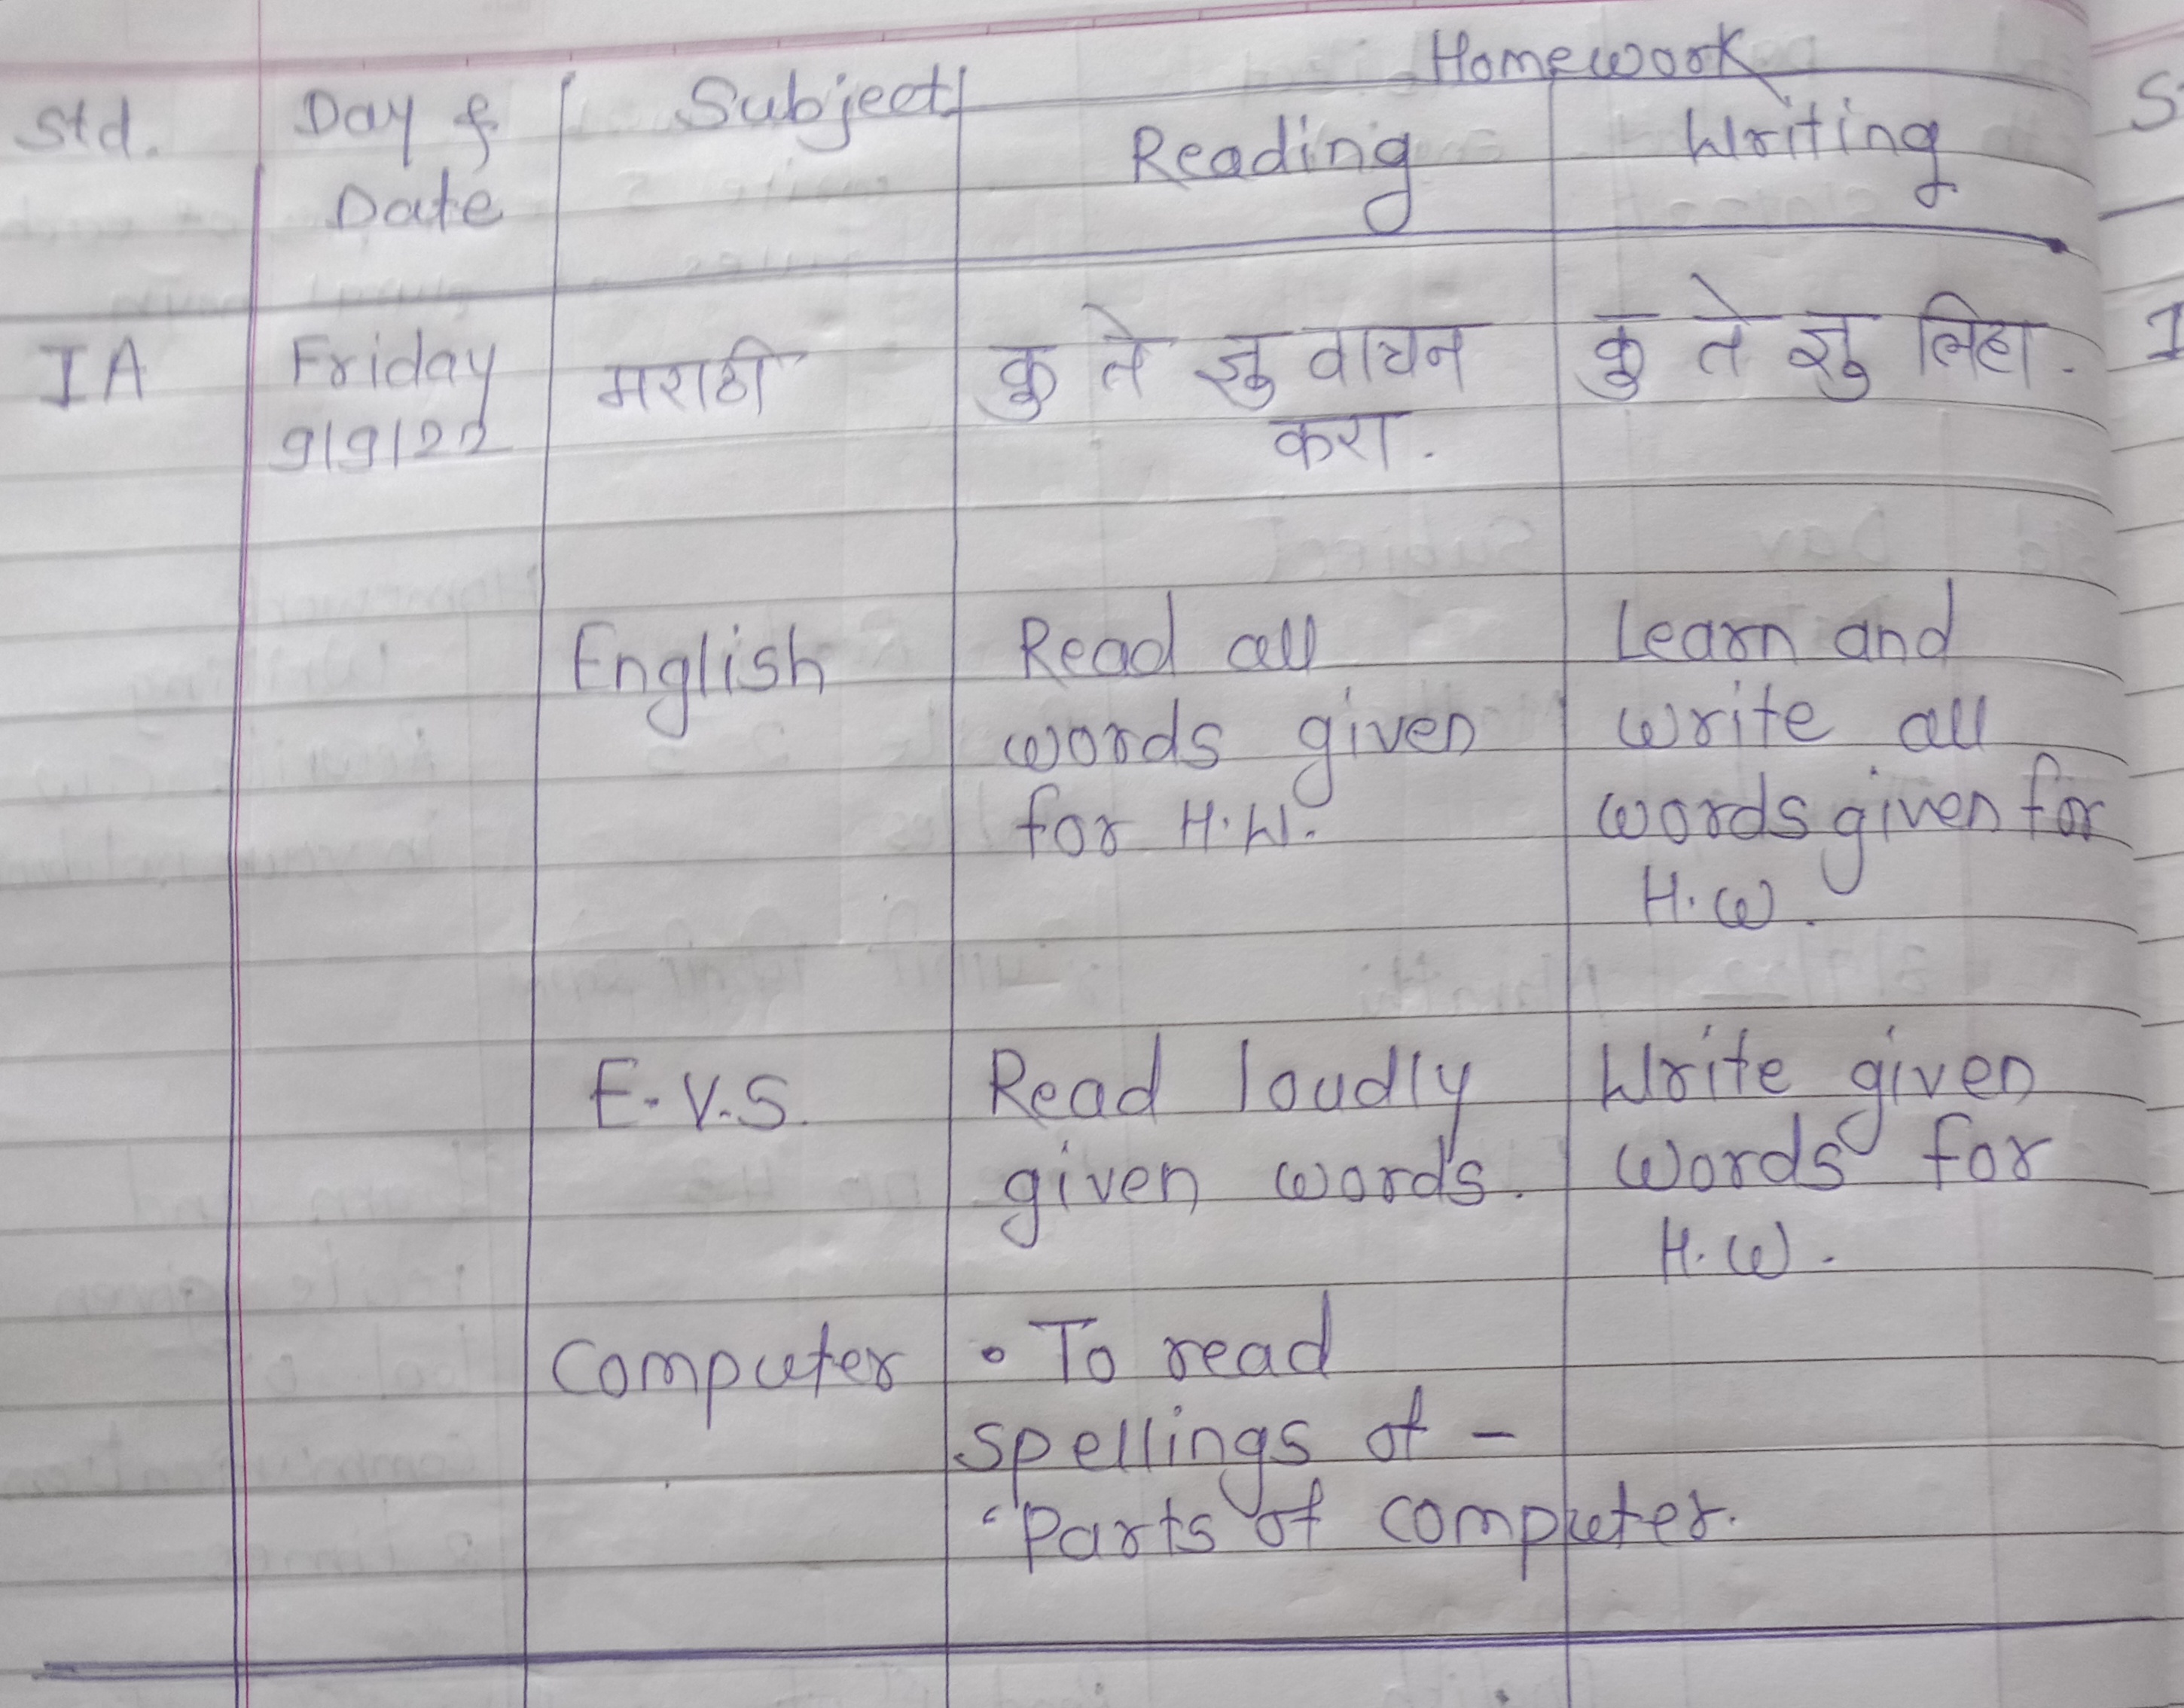 Homework
Std. Day & Subject Reading Writing
Date
I A Friday मराठी कु ते ज्ञु वाचन कु ते ज्ञु लिहा.
9/9/22 करा.
English Read all Learn and
words given write all
for H.W. words given for
H.W.
E.V.S. Read loudly Write given
given words. words for
H.W.
Computer • To read
spellings of -
"Parts of computer.